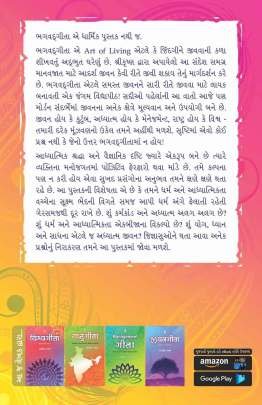 ભગવદ્ગીતા એ ધાર્મિક પુસ્તક નથી જ.
ભગવદ્ગીતા એ Art of Living એટલે કે જિંદગીને જીવવાની કળા
શીખવતું અદ્ભુત ઘરેણું છે. શ્રીકૃષ્ણ દ્વારા અપાયેલી આ સંદેશ સમગ્ર
માનવજાત માટે આદર્શ જીવન કેવી રીતે જીવી શકાય તેનું માર્ગદર્શન કરે
છે. ભગવદ્ગીતા એટલે સમસ્ત જીવનને સારી રીતે જીવવા માટે લાયક
બનાવતી એક જંગમ વિદ્યાપીઠ! સદીઓ પહેલાંની આ વાતો આજે પણ
મોર્ડન સંદર્ભમાં જીવનના અનેક ક્ષેત્રે મૂલ્યવાન અને ઉપયોગી બને છે.
જીવન હોય કે કુટુંબ, અધ્યાત્મ હોય કે મેનેજમેન્ટ, રાષ્ટ્ર હોય કે વિશ્વ -
તમારી દરેક મૂંઝવણનો ઉકેત તમને અહીંથી મળશે. સૃષ્ટિમાં એવો કોઈ
પ્રશ્ન નથી કે જેનો ઉત્તર ભગવદ્ગીતામાં ન હોય!
આધ્યાત્મિક શ્રદ્ધા અને વૈજ્ઞાનિક દષ્ટિ જ્યારે એકરૂપ બને છે ત્યારે
વ્યક્તિના મનોજગતમાં પોઝિટિવ ફેરફારો થવા માંડે છે. તમે કલ્પના
પણ ન કરી હોય એવા સુખદ પ્રસંગોનો અનુભવ તમને ક્ષણે ક્ષણે થતો
રહે છે. આ પુસ્તકની વિશેષતા એ છે કે તમને ધર્મ અને આધ્યાત્મિકતા
વચ્ચેના સૂક્ષ્મ ભેદની વિગતે સમજ આપી ધર્મ અંગે ફેલાતી રહેતી
ગેરસમજથી દૂર રાખે છે. શું કર્મકાંડ અને અધ્યાત્મ અલગ અલગ છે?
શું ધર્મ અને આધ્યાત્મિકતા એકબીજાના વિકલ્પો છે? શું યોગ, ધ્યાન
અને સાધના એટલે જ અધ્યાત્મ જીવન? જિજ્ઞાસુઓને થતા આવા અનેક
પ્રશ્નોનું નિરાકરણ તમને આ પુસ્તકમાં જોવા મળશે.
વિશ્વગીતા
રાષ્ટ્રગીતા
Management
ગીતા
જીવનગીતા
amazon
Google Play